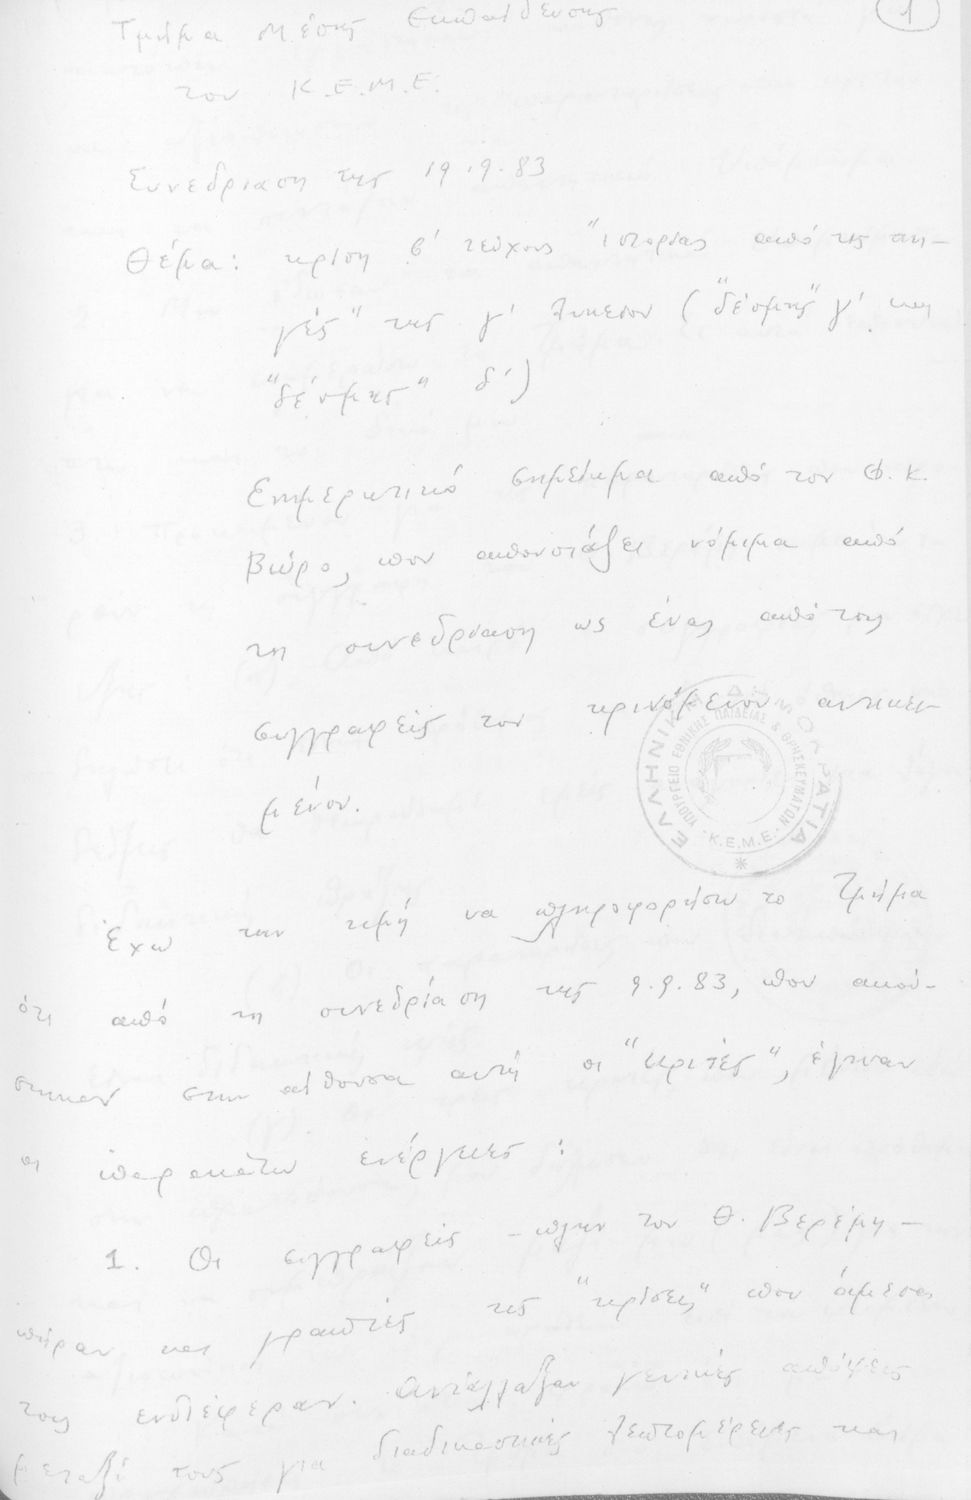 1
Τμήμα Μέσης Εκπαίδευσης
του Κ.Ε.Μ.Ε.
Συνεδρίαση της 19.9.83
Θέμα: κρίση β' τεύχους "ιστορίας από τις πη-
γές" της γ' Λυκείου ("δέσμης" γ' και
"δέσμης" δ')
Ενημερωτικό σημείωμα από τον Φ.Κ.
Βώρο, που απουσιάζει νόμιμα από
τη συνεδρίαση ως ένας από τους
συγγραφείς του κρινόμενου αντικει-
μένου.
ΕΛΛΗΝΙΚΗ ΔΗΜΟΚΡΑΤΙΑ
ΥΠΟΥΡΓΕΙΟ ΕΘΝΙΚΗΣ ΠΑΙΔΕΙΑΣ & ΘΡΗΣΚΕΥΜΑΤΩΝ
Κ.Ε.Μ.Ε.
Έχω την τιμή να πληροφορήσω το Τμήμα
ότι από τη συνεδρίαση της 9.9.83, που ακού-
στηκαν στην αίθουσα αυτή οι "κριτές", έγιναν
οι παρακάτω ενέργειες:
1. Οι συγγραφείς - πλην του Θ. Βερέμη -
πήραν και γραπτές τις "κρίσεις" που άμεσα
τους ενδιέφεραν. Αντάλλαξαν γενικές απόψεις
μεταξύ τους για διαδικαστικές λεπτομέρειες και